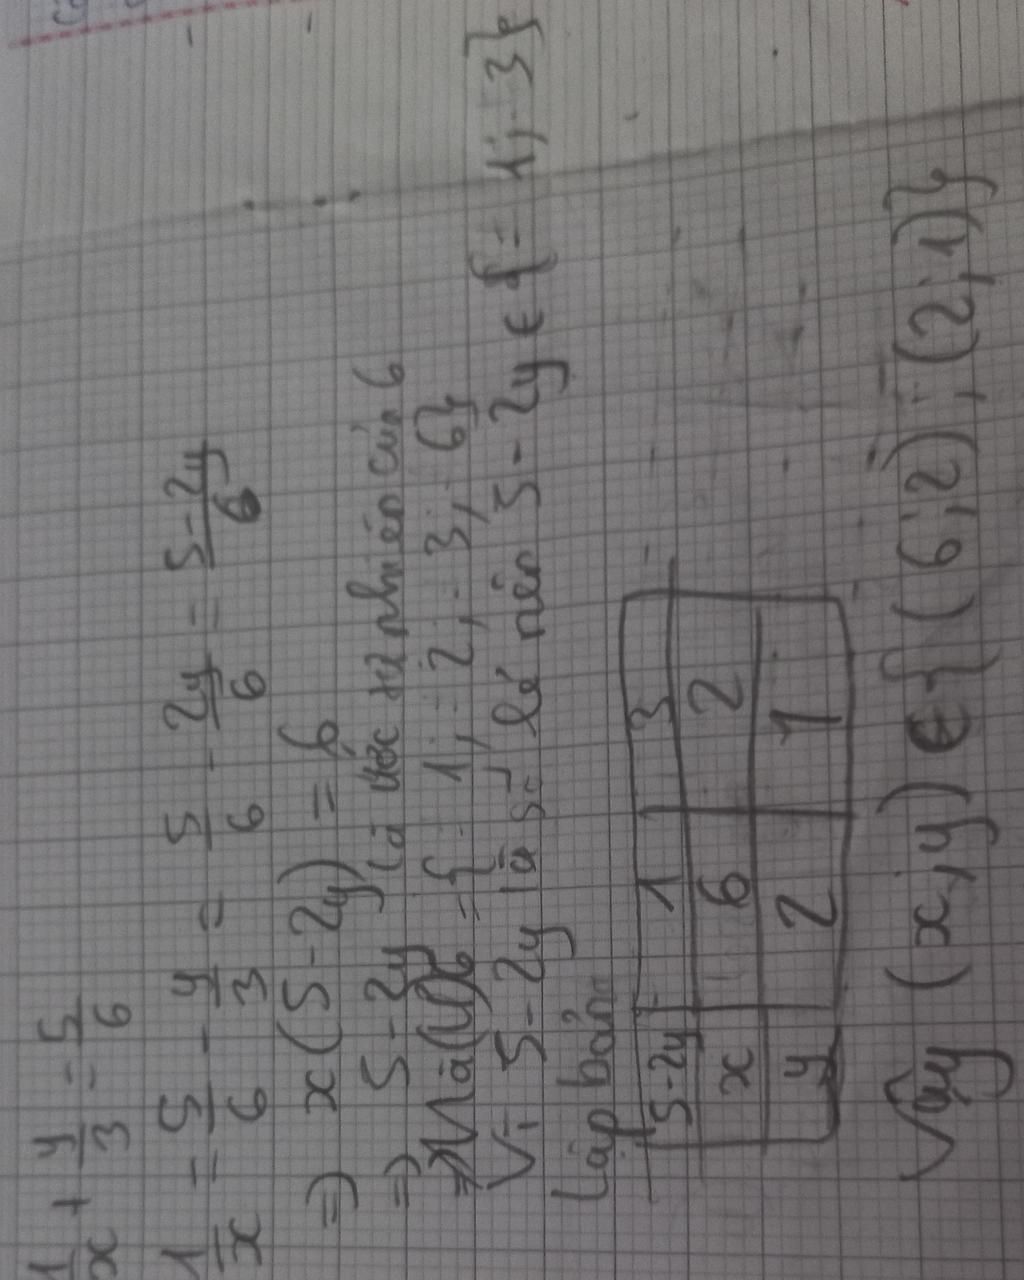 1/x + y/3 = 5/6
1/x = 5/6 - y/3 = 5/6 - 2y/6 = 5-2y/6
=> x(5-2y) = 6
=> 5-2y là ước tự nhiên của 6
=> Mà Ư(6) = { 1; 2; 3; 6}
Vì 5-2y là số lẻ nên 5-2y ∈ { 1; 3}
Lập bản
5-2y 1 3
x 6 2
y 2 1
Vậy (x,y) ∈ { (6;2); (2;1)}